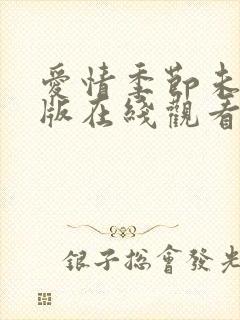 愛情季節未
版在綫觀看
銀子總會發光